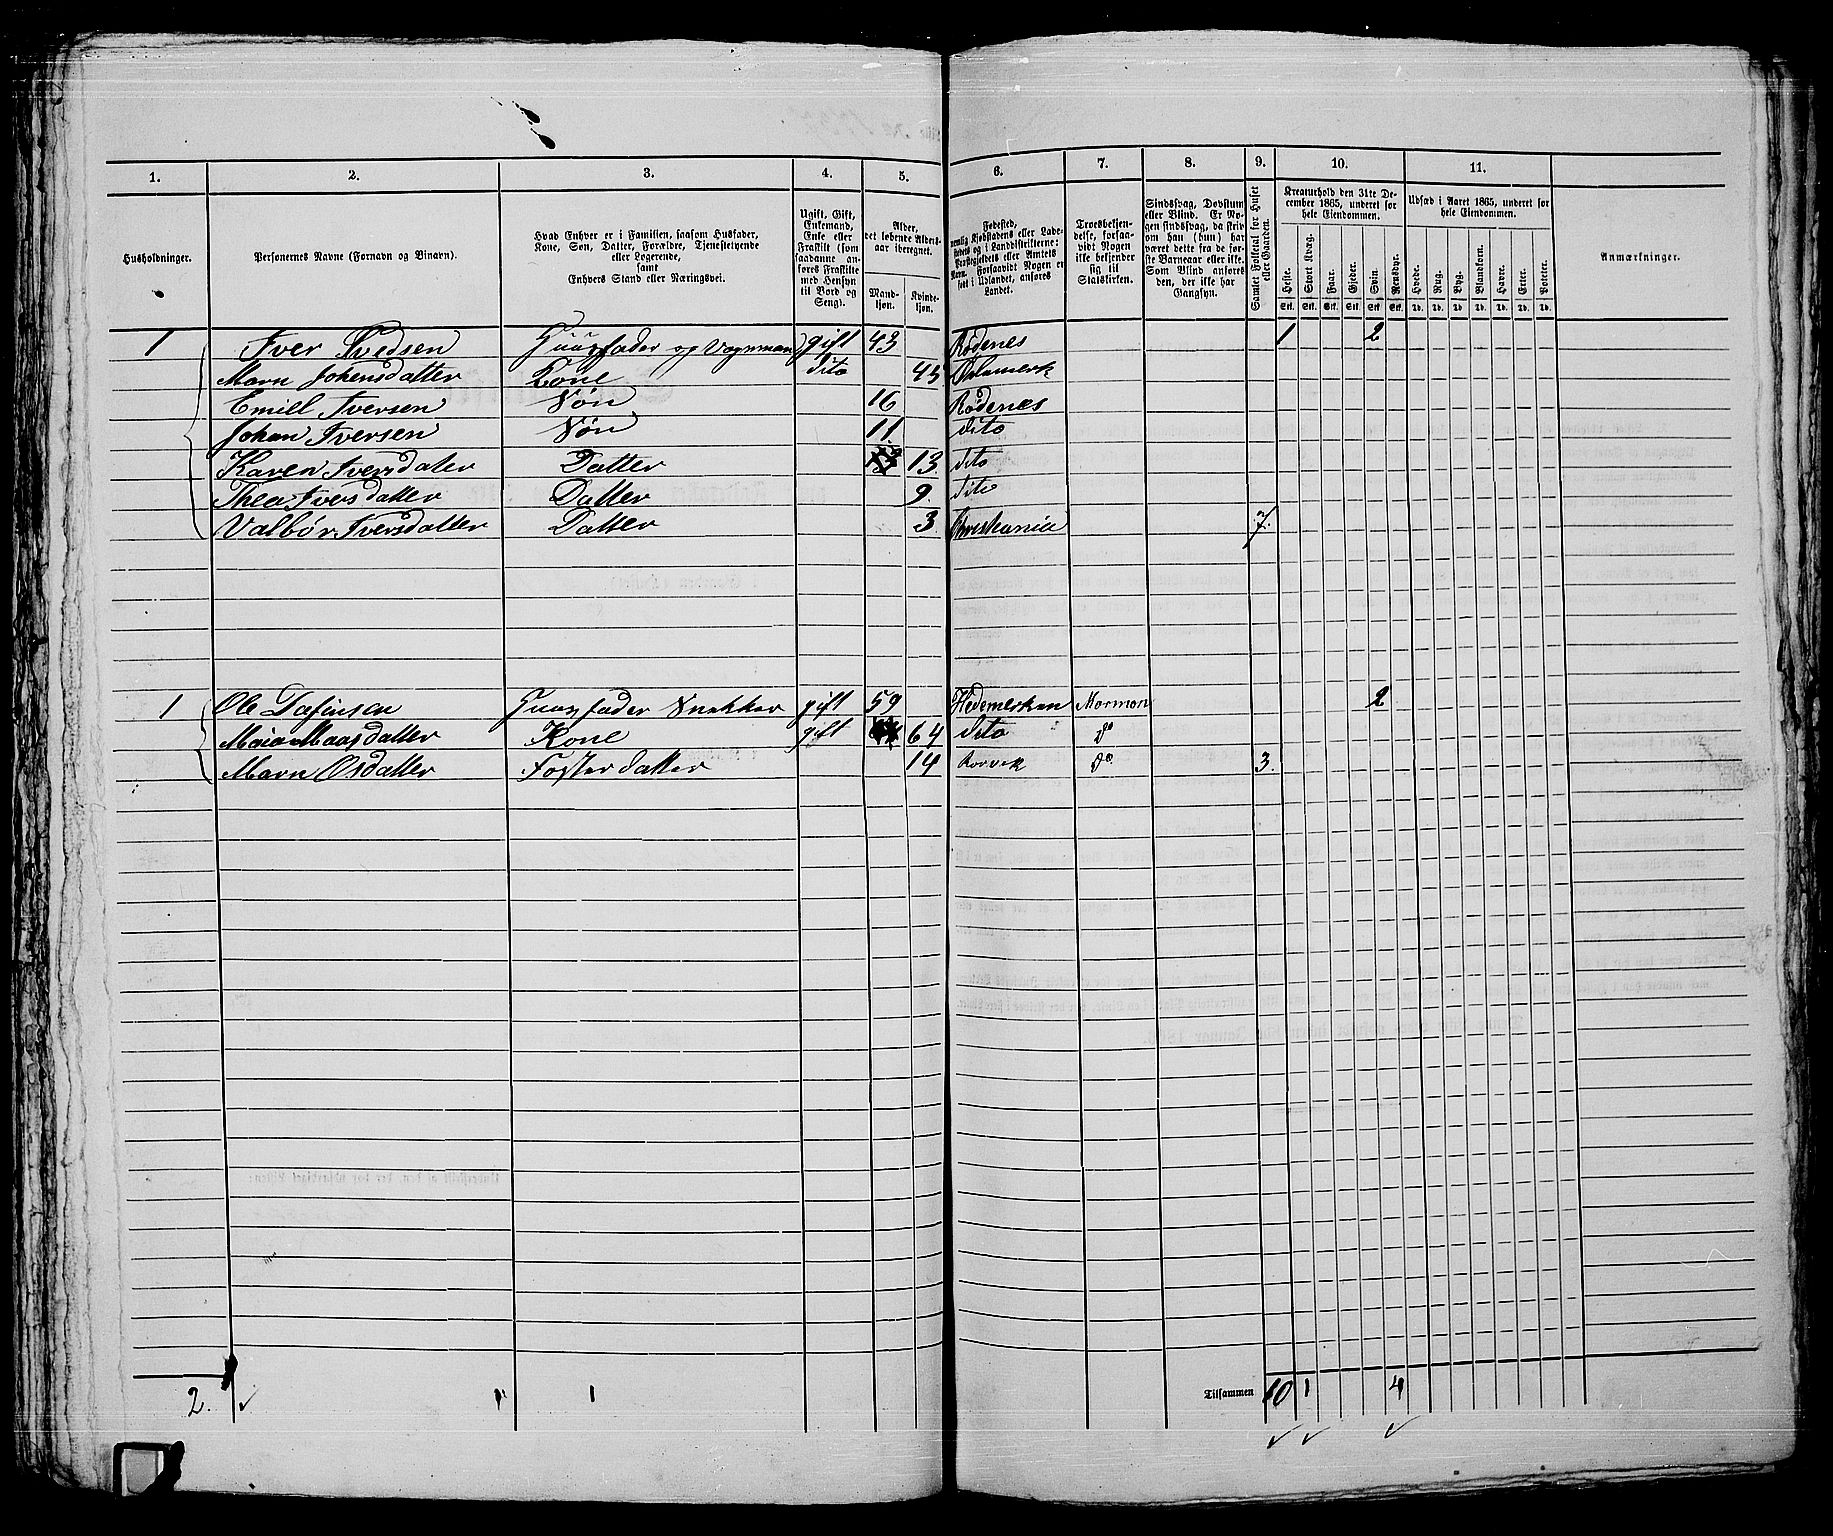 1. 2. 3. 4. 5. 6. 7. 8. 9. 10. 11.
Husholdninger.
Personernes Navne (Fornavn og Binavn).
Hvad Enhver er i Familien, saasom Husfader,
Kone, Søn, Datter, Forældre, Tjenestetyende
eller Logerende,
samt
Enhvers Stand eller Næringsvei.
Ugift, Gift,
Enkemand,
Enke eller
Fraskilt (som
saadanne an-
føres Fraskilte
med Hensyn
til Bord og
Seng).
Alder,
det løbende Alders-
aar iberegnet.
Mand-
kjøn.
Kvinde-
kjøn.
Fødested,
nemlig Kjøbstadens eller Lade-
stedets og i Landdistrikterne:
Præstegjeldets eller Amtets
Navn. Forsaavidt Nogen er
født i Udlandet, anføres
Landet.
Troesbekjen-
delse, forsaa-
vidt Nogen
ikke bekjender
sig til
Statskirken.
Sindssvag, Døvstum
eller Blind. Er No-
gen sindssvag, da skriv
om han (hun) har
været dette fra de før-
ste Barneaar eller ikke.
Som Blind anføres
den, der ikke har
Gangsyn.
Samlet Folketal for Huset
eller Gaarden.
Kreaturhold den 31te De-
cember 1865, underet for
hele Eiendommen.
Heste. Stort Kvæg. Faar. Gjeder. Svin. Rensdyr.
Stk. Stk. Stk. Stk. Stk. Stk.
Udsæd i Aaret 1865, underet for
hele Eiendommen.
Hvede. Rug. Byg. Blandkorn. Havre. Erter. Poteter.
Td. Td. Td. Td. Td. Td. Td.
Anmærkninger.
1 Iver Svedsen Huusfader og Vognman gift 43 Rødenes 1 2
Marn Johensdatter Kone dito 45
Emiel Iversen Søn 16 Rødenes
Johan Iversen Søn 11 dito
Karen Iversdater Datter 13 dito
Thea Iversdatter Datter 9. dito
Valbør Iversdatter Datter 3 Christiania 7.
1 Ole Dafinsen Huusfader Snekker gift 59 Hedemerken Mormon 2
Maia Maasdatter Kone gift 64 dito do
Marn Osdatter Fosterdatter 14 do 3.
2. 1 Tilsammen 10 1 4